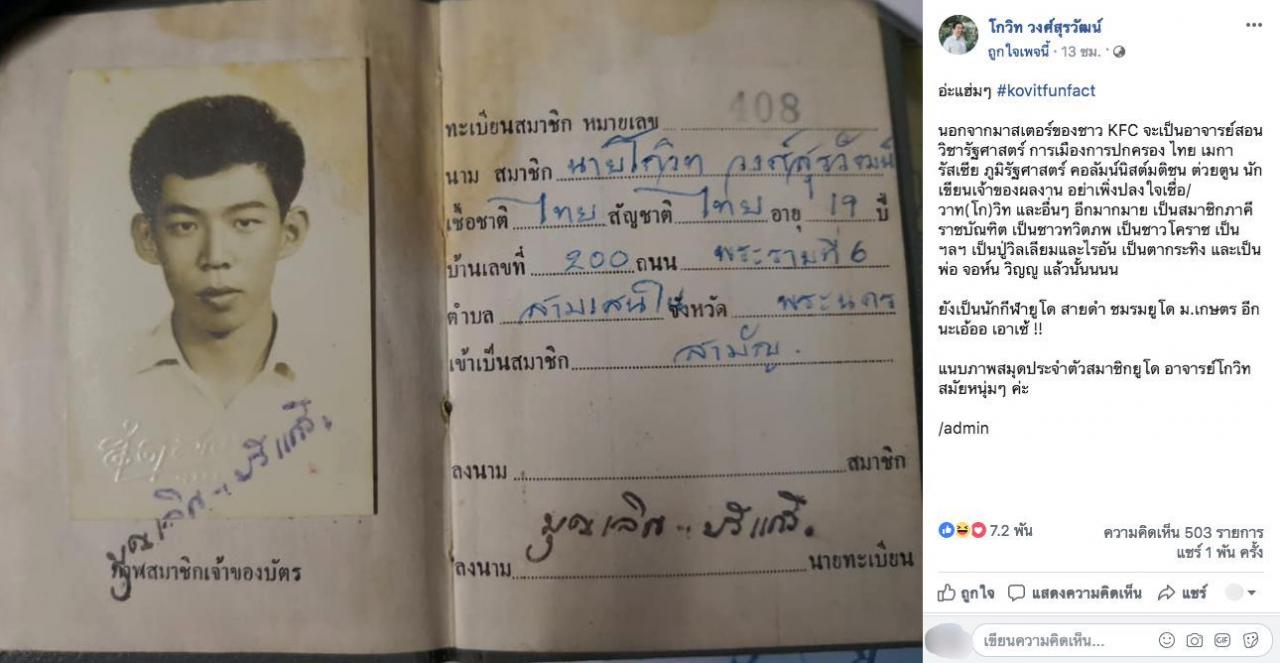 408
ทะเบียนสมาชิก หมายเลข
นาม สมาชิก นายโกวิท วงศ์สุรวัฒน์
เชื้อชาติ ไทย สัญชาติ ไทย อายุ 19 ปี
บ้านเลขที่ 200 ถนน พระรามที่ 6
ตำบล สามเสนใน จังหวัด พระนคร
เข้าเป็นสมาชิก สามัญ.
ลงนาม สมาชิก
ลงนาม นายทะเบียน
ภาพสมาชิกเจ้าของบัตร
โกวิท วงศ์สุรวัฒน์
ถูกใจเพจนี้ · 13 ชม. ·
อ่ะแฮ่มๆ #kovitfunfact
นอกจากมาสเตอร์ของชาว KFC จะเป็นอาจารย์สอน
วิชารัฐศาสตร์ การเมืองการปกครอง ไทย เมกา
รัสเซีย ภูมิรัฐศาสตร์ คอลัมน์นิสต์มติชน ต่วยตูน นัก
เขียนเจ้าของผลงาน อย่าเพิ่งปลงใจเชื่อ/
วาท(โก)วิท และอื่นๆ อีกมากมาย เป็นสมาชิกภาคี
ราชบัณฑิต เป็นชาวทวิตภพ เป็นชาวโคราช เป็น
ฯลฯ เป็นปู่วิลเลียมและไรอัน เป็นตากระทิง และเป็น
พ่อ จอห์น วิญญู แล้วนั้นนนน
ยังเป็นนักกีฬายูโด สายดำ ชมรมยูโด ม.เกษตร อีก
นะเอ้ออ เอาเซ้ !!
แนบภาพสมุดประจำตัวสมาชิกยูโด อาจารย์โกวิท
สมัยหนุ่มๆ ค่ะ
/admin
7.2 พัน ความคิดเห็น 503 รายการ
แชร์ 1 พัน ครั้ง
ถูกใจ แสดงความคิดเห็น แชร์
เขียนความคิดเห็น...
GIF